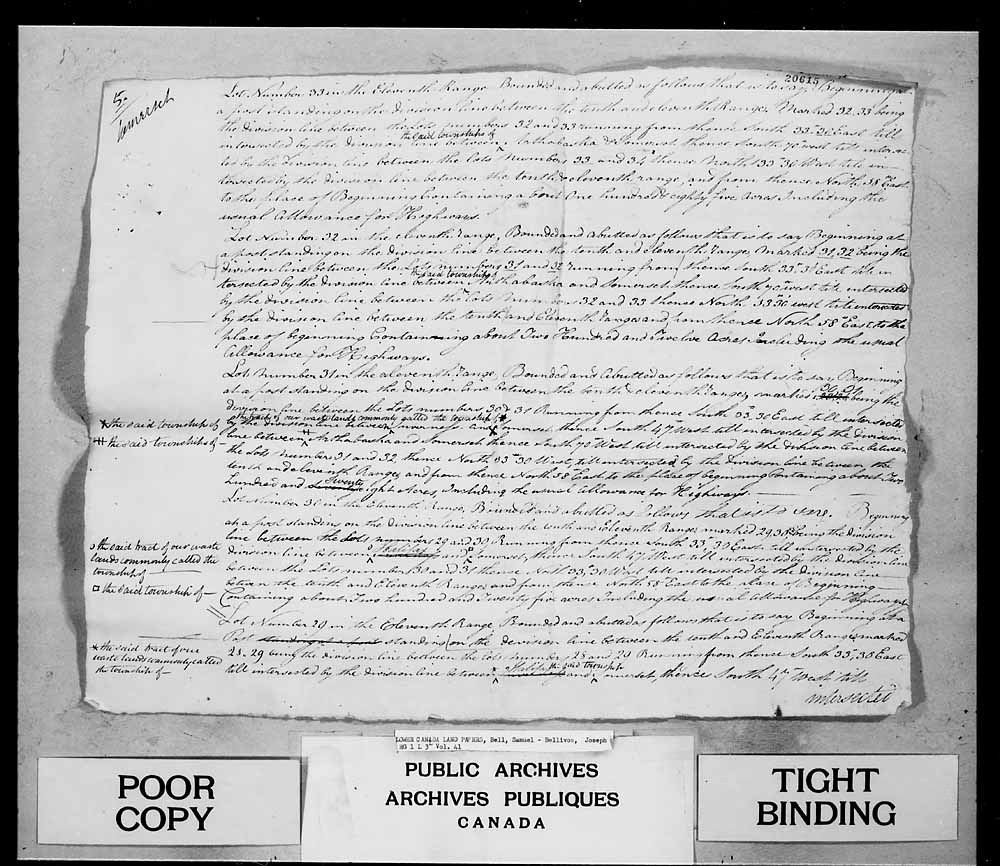 20615
5
Somerset
Lot Number 33 in the Eleventh Range Bounded and abutted as follows that is to say, Beginning at
a post standing on the division line between the tenth and eleventh Range, Marked 32, 33 being
the division line between the Lots numbers 32 and 33 running from thence South 33° 30 East till
intersected by the division line between the said townships of Arthabaska & Somerset thence South 70° west till intersec-
ted by the Division line between the Lots Numbers 33 and 34 thence North 33° 30 West till in-
tersected by the division line between the tenth & eleventh range, and from thence North 58 East
to the place of Beginning Containing about One hundred & eighty five acres Including the
usual allowance for Highways.
Lot Number 32 in the eleventh range, Bounded and abutted as follows that is to say Beginning at
a post standing on the division line between the tenth and eleventh range, Marked 31, 32 being the
division line between the Lots numbers 31 and 32 running from thence South 33° 30 East till in-
tersected by the division line between the said townships of Arthabaska and Somerset thence South 70° west till intersected
by the division line between the Lots Numbers 32 and 33 thence North 33° 30 west till intersected
by the division line between the tenth and Eleventh Ranges and from thence North 58° East to the
place of beginning Containing about Two Hundred and Twelve Acres Including the usual
allowance for Highways.
Lot Number 31 in the eleventh range, Bounded and Abutted as follows that is to say Beginning
at a post standing on the division line between the tenth & eleventh Ranges marked 30, 31 being the
division line between the Lots numbers 30 & 31 Running from thence South 33° 30 East till intersected
by the division line between the tract of our waste lands commonly called the township of and × Somerset thence South 47 West till intersected by the division
line between # Arthabaska and Somerset thence South 70 West till intersected by the division line between
the Lots number 31 and 32, thence North 33° 30 West, till intersected by the Division line between the
tenth and eleventh Range, and from thence North 58 East to the place of beginning Containing about Two
hundred and Twenty eight Acres Including the usual allowance for Highways
Lot Number 30 in the Eleventh Range, Bounded and abutted as follows that is to say. Beginning
at a post standing on the division line between the tenth and Eleventh Range marked 29, 30 being the Division
line between the Lots number 29 and 30 Running from thence South 33° 30 East till intersected by the
division line between Halifax and Somerset thence South 47 West till intersected by the division line
between the Lots number 30 and 31 thence North 33, 30 West till intersected by the division line
between the tenth and Eleventh Ranges and from thence North 58 East to the place of Beginning
Containing about Two hundred and Twenty five acres Including the usual allowance for Highways
Lot Number 29 in the Eleventh Range Bounded and abutted as follows that is to say Beginning at a
Post standing at a post standing on the division line between the tenth and Eleventh Ranges marked
28. 29 being the division line between the Lots number 28 and 29 Running from thence South 33°, 30 East
till intersected by the division line between Halifax and the said township Somerset, thence South 47 West till
intersected
× the said township of
# the said townships of –
the said tract of our waste
lands commonly called the
township of
□ the said township of –
× the said tract of our
waste lands commonly called
the township of –
LOWER CANADA LAND PAPERS, Bell, Samuel - Bellivoo, Joseph
RG 1 L 3" Vol. 41
POOR
COPY
PUBLIC ARCHIVES
ARCHIVES PUBLIQUES
CANADA
TIGHT
BINDING